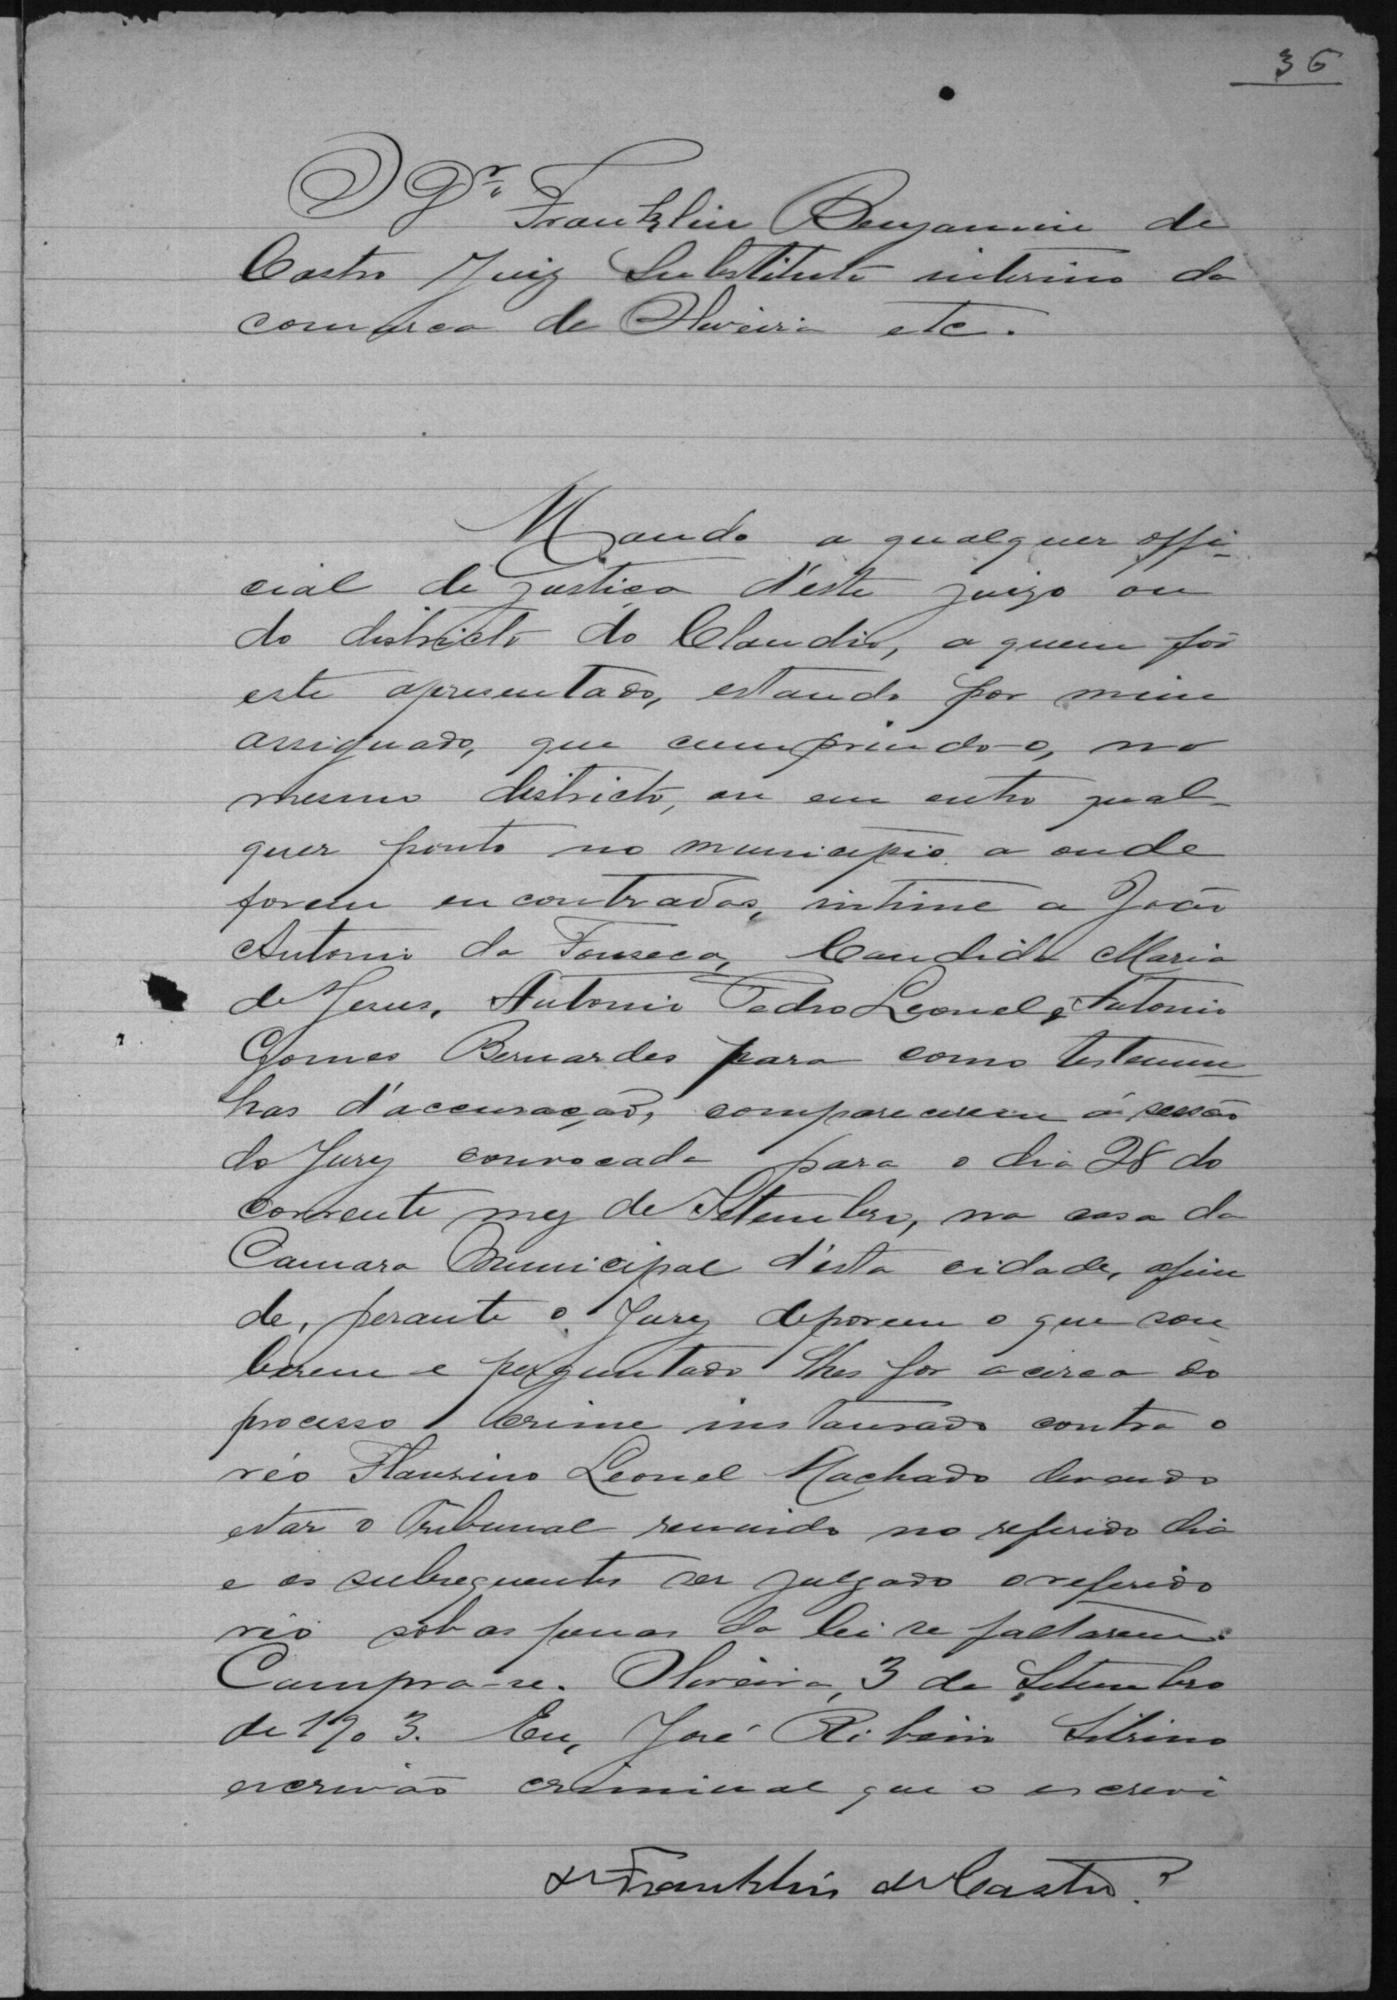 36
O Dr. Franklin Benjamin de
Castro Juiz Substituto interino da
comarca de Oliveira etc.
Mando a qualquer offi-
cial de justiça d'este juizo ou
do districto do Claudio, a quem fôr
este apresentado, estando por mim
assignado, que cumprindo-o, no
mesmo districto, ou em outro qual-
quer ponto no municipio a onde
forem encontrados, intime a João
Antonio da Fonseca, Candida Maria
de Jesus, Antonio Pedro Leonel e Antonio
Gomes Bernardes para como testemu-
nhas d'accusação, comparecerem á sessão
do Jury convocada para o dia 28 do
corrente mez de Setembro, na casa da
Camara Municipal d'esta cidade, afim
de, perante o Jury deporem o que sou-
berem e perguntado lhes for acerca do
processo crime instaurado contra o
réo Flauzino Leonel Machado devendo
estar o Tribunal reunido no referido dia
e os subsequentes ser julgado o referido
réo sob as penas da lei se faltarem.
Cumpra-se. Oliveira, 3 de Setembro
de 1903. Eu, José Ribeiro
escrivão criminal que o escrevi
Franklin de Castro.